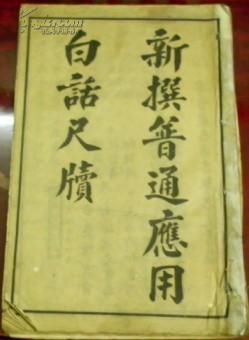 新撰普通應用
白話尺牘